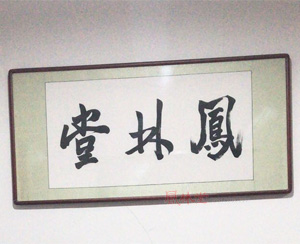 鳳林堂